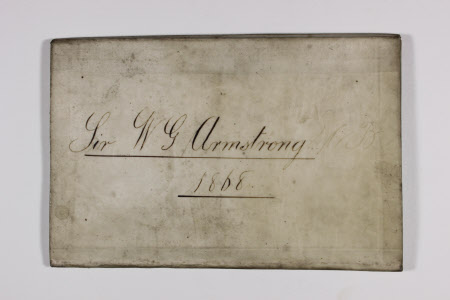 Sir W G Armstrong
1868